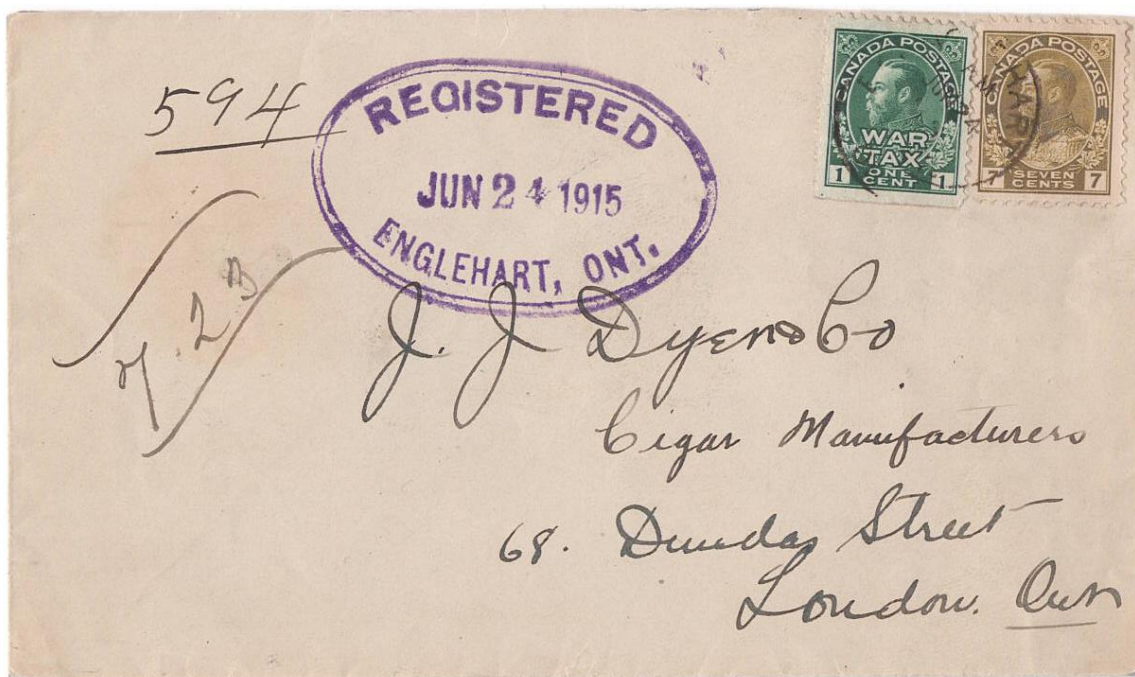 594
REGISTERED
JUN 24 1915
ENGLEHART, ONT.
CANADA POSTAGE
WAR
TAX
1 ONE 1
CENT
CANADA POSTAGE
7 SEVEN 7
CENTS
HAR
AM
24
J. J Dyer & Co
Cigar Manufacturers
68. Dundas Street
London. Ont